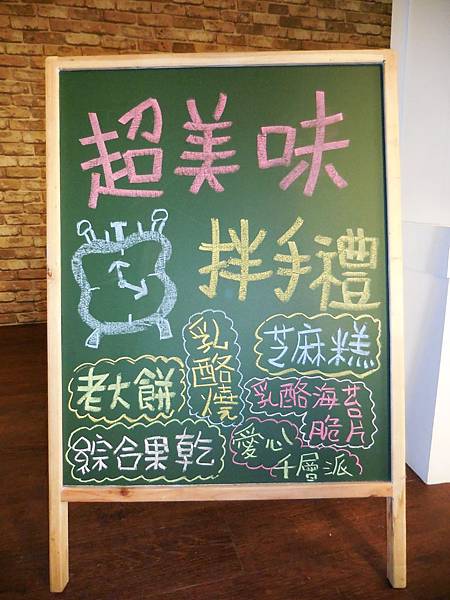 超美味
拌手禮
乳酪燒
芝麻糕
老大餅
乳酪海苔
脆片
綜合果乾
愛心
千層派